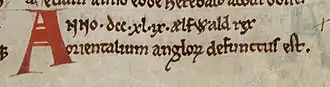 Anno .dcc.xl.ix. ælfwald rex
orientalium anglorum defunctus est.